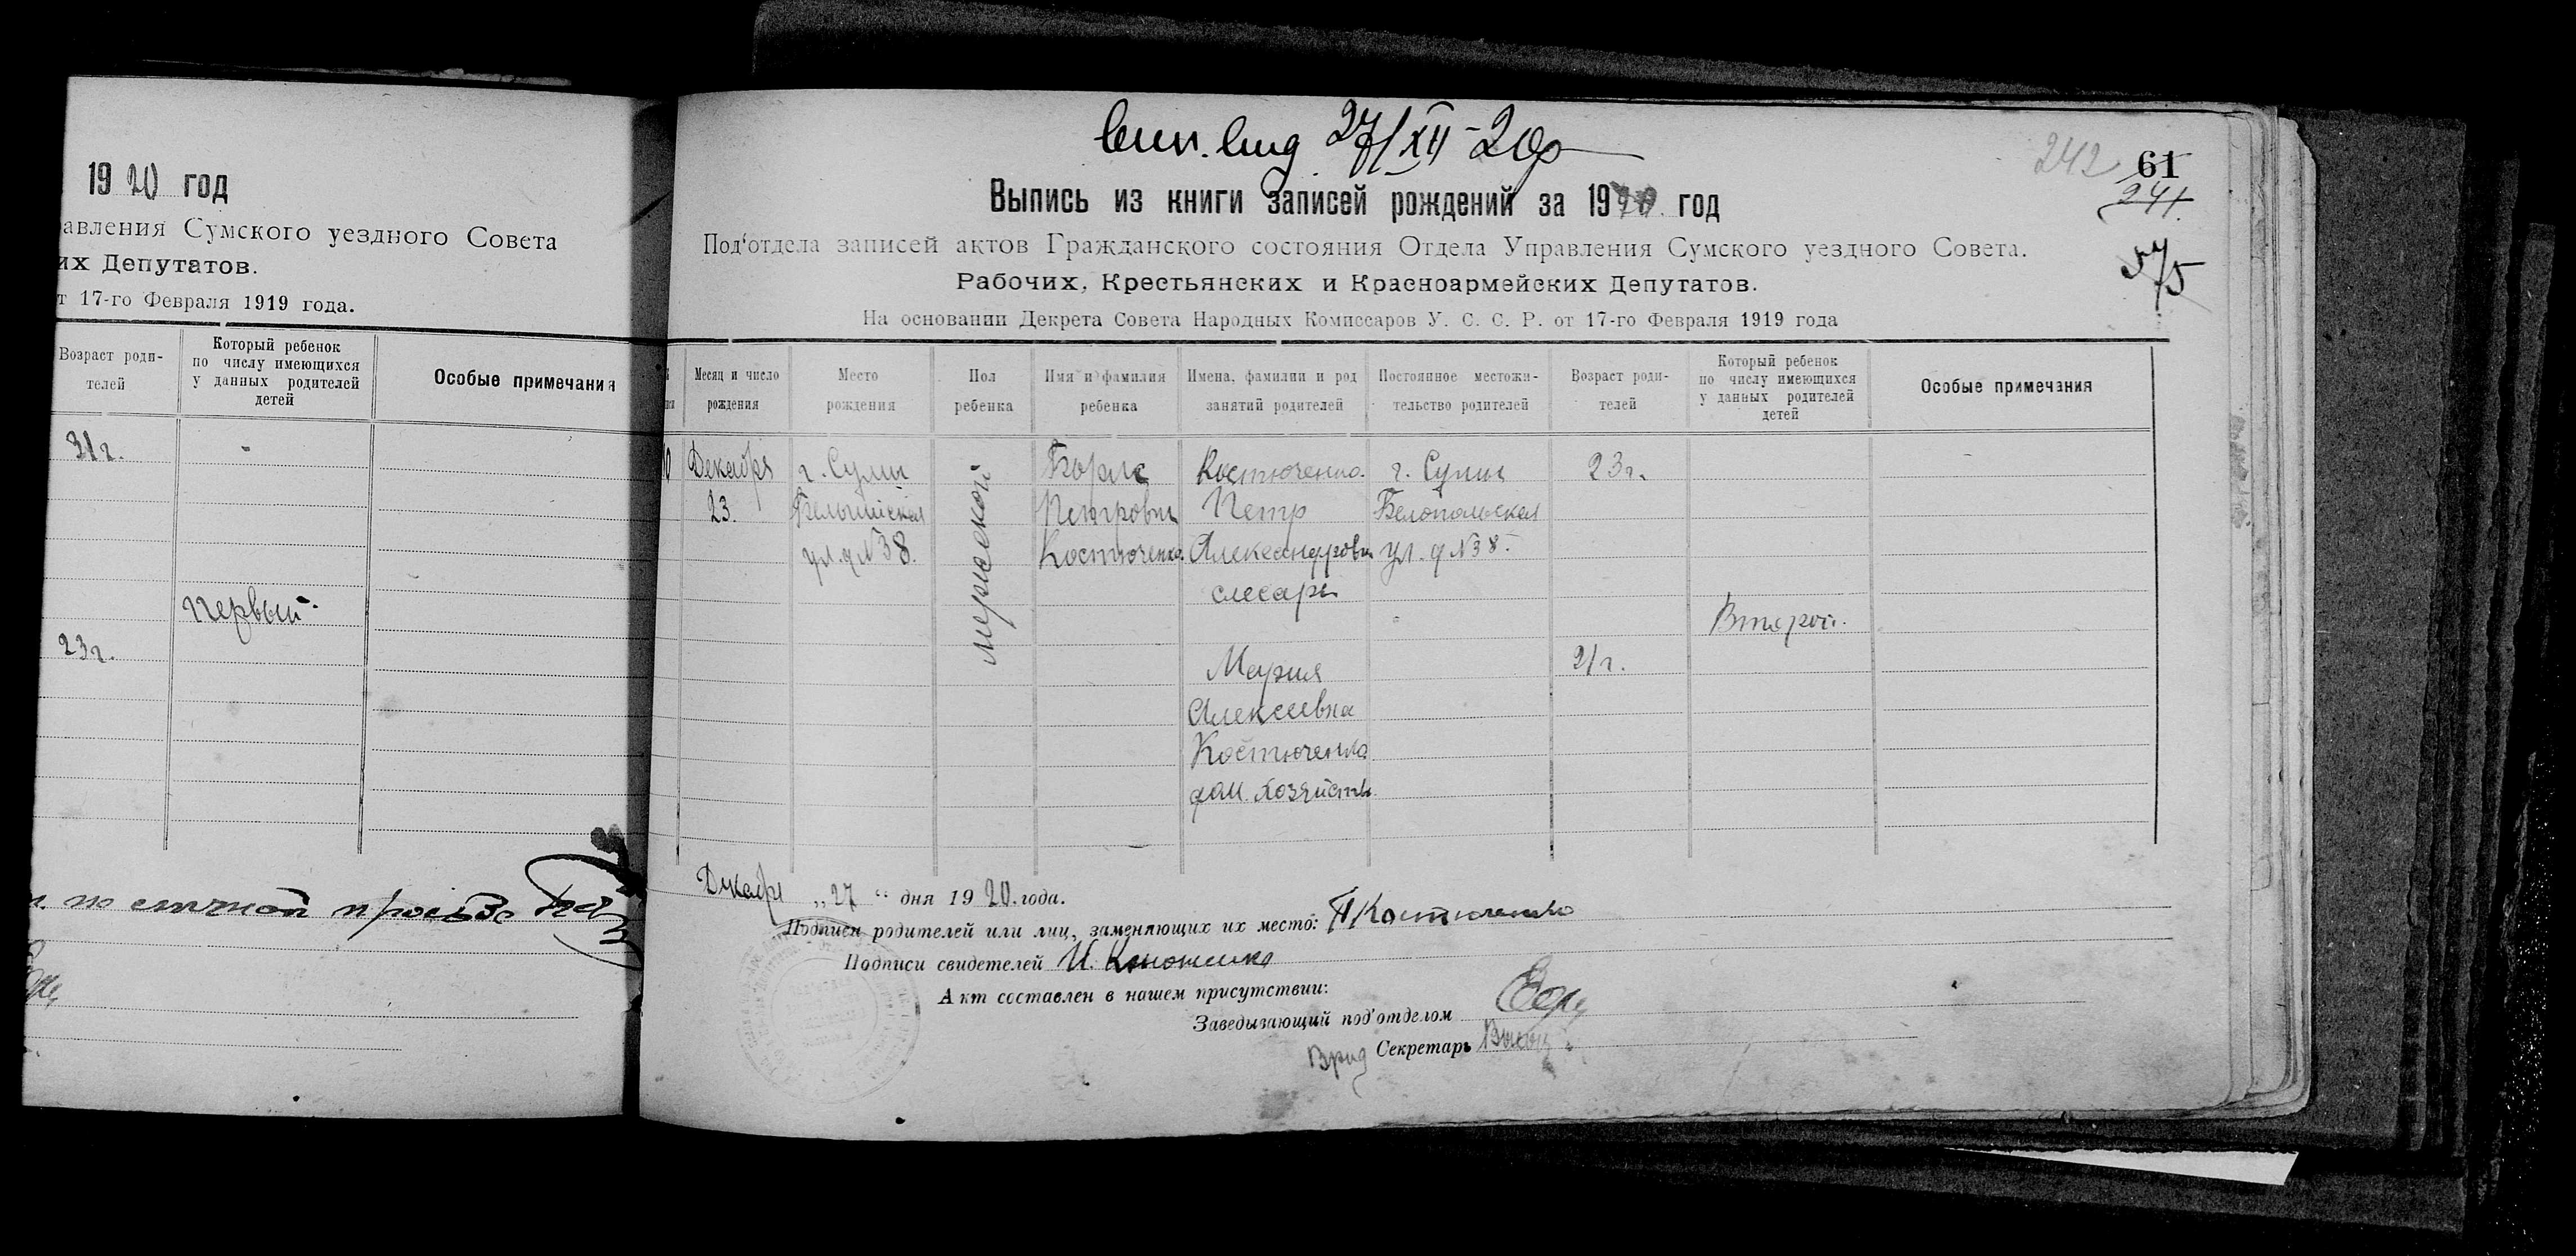 1920 год
авления Сумского уездного Совета
их Депутатов.
т 17-го Февраля 1919 года.
Возраст роди-
телей
Который ребенок
по числу имеющихся
у данных родителей
детей
Особые примечания
31 г.
-
Первый.
23 г.
по личной просьбе
27/XII-20
242
61
241.
Выпись из книги записей рождений за 1920 год
Под'отдела записей актов Гражданского состояния Отдела Управления Сумского уездного Совета.
Рабочих, Крестьянских и Красноармейских Депутатов.
На основании Декрета Совета Народных Комиссаров У. С. С. Р. от 17-го Февраля 1919 года
Месяц и число
рождения
Место
рождения
Пол
ребенка
Имя и фамилия
ребенка
Имена, фамилии и род
занятий родителей
Постоянное местожи-
тельство родителей
Возраст роди-
телей
Который ребенок
по числу имеющихся
у данных родителей
детей
Особые примечания
Декабря
23.
г. Сумы
ул. д №38.
мужской
Борис
Петрович
Костюченко.
Костюченко.
Петр
Александрович
слесарь
Мария
Алексеевна
Костюченко
дом. хозяйств.
г. Сумы
Белопольская
ул. д №38.
23 г.
21 г.
Второй.
Декабря „27“ дня 1920. года.
Подписи родителей или лиц, заменяющих их место: П Костюченко
Подписи свидетелей И.
Акт составлен в нашем присутствии:
Заведывающий под'отделом
Врид Секретарь